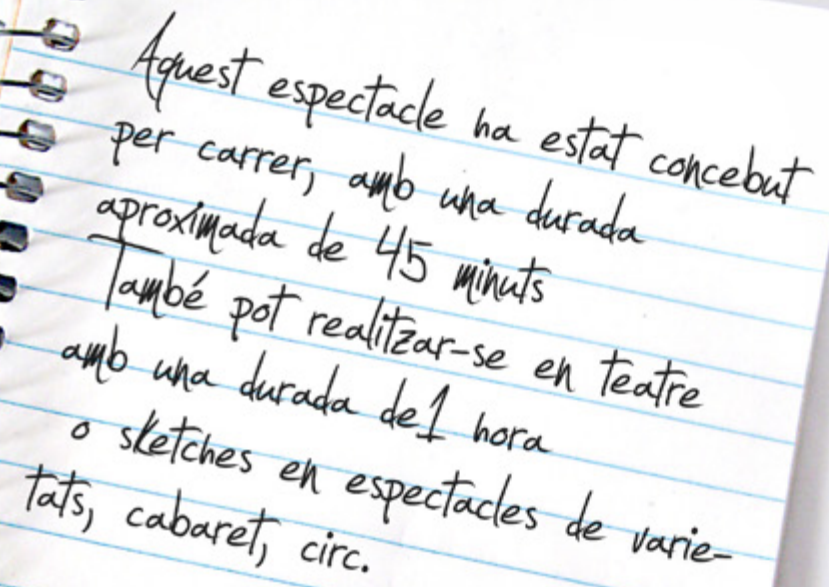 Aquest espectacle ha estat concebut
per carrer, amb una durada
aproximada de 45 minuts
També pot realitzar-se en teatre
amb una durada de 1 hora
o sketches en espectacles de varie-
tats, cabaret, circ.